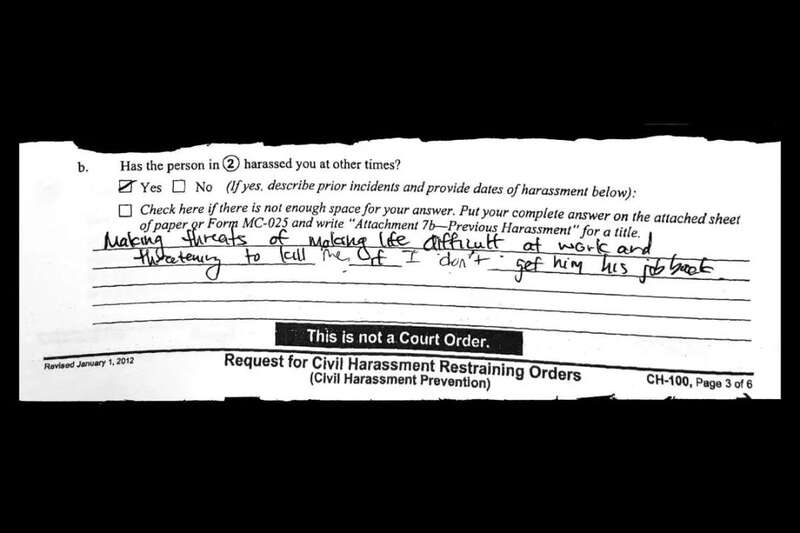 b. Has the person in ② harassed you at other times?
☑ Yes ☐ No (If yes, describe prior incidents and provide dates of harassment below):
☐ Check here if there is not enough space for your answer. Put your complete answer on the attached sheet
of paper or Form MC-025 and write "Attachment 7b—Previous Harassment" for a title.
Making threats of making life difficult at work and
threatening to kill me if I don't get him his job back.
This is not a Court Order.
Revised January 1, 2012
Request for Civil Harassment Restraining Orders
(Civil Harassment Prevention)
CH-100, Page 3 of 6